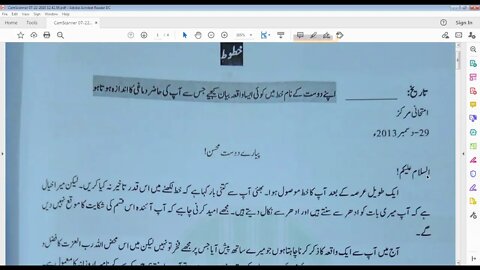 CamScanner 07-22-2020 12.41.55.pdf - Adobe Acrobat Reader DC
File Edit View Window Help
Home Tools CamScanner 07-22-2...
Sign In
Share
خطوط
تاریخ:
اپنے دوست کے نام خط میں کوئی ایسا واقعہ بیان کیجیے جس سے آپ کی حاضر دماغی کا اندازہ ہوتا ہو
امتحانی مرکز
29-دسمبر 2013ء
پیارے دوست محسن!
السلام علیکم!
ایک طویل عرصہ کے بعد آپ کا خط موصول ہوا۔ بھئی آپ سے کتنی بار کہا ہے کہ خط لکھنے میں اس قدر تاخیر نہ کیا کریں۔ لیکن میرا خیال
ہے کہ آپ میری بات کو ادھر سے سنتے ہیں اور ادھر سے نکال دیتے ہیں۔ مجھے امید کرنی چاہیے کہ آپ آئندہ اس قسم کی شکایت کا موقع نہیں دیں
گے۔
آج میں آپ سے ایک واقعہ کا ذکر کرنا چاہتا ہوں جو میرے ساتھ پیش آیا جس پر مجھے فخر تو نہیں لیکن میں اس محض اللہ رب العزت کا فضل و